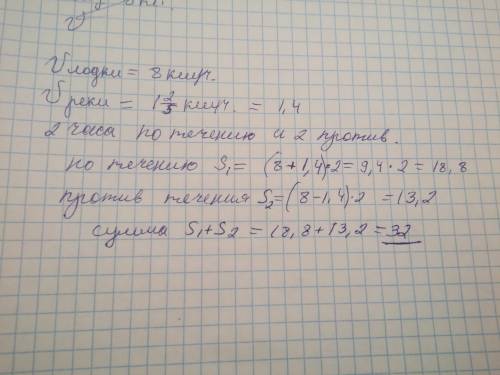 V
Vлодки = 8 км/ч.
Vреки = 1 2/5 км/ч. = 1,4
2 часа по течению и 2 против.
по течению S₁ = (8+1,4)·2 = 9,4·2 = 18,8
против течения S₂ = (8-1,4)·2 = 13,2
сумма S₁+S₂ = 18,8+13,2 = 32